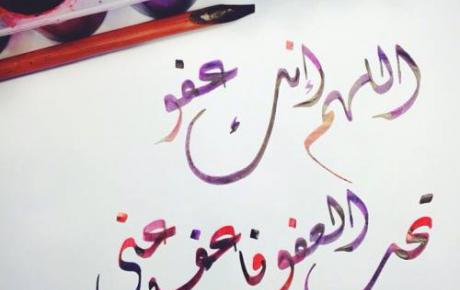 اللهم إنك عفو
تحب العفو فاعفو عني